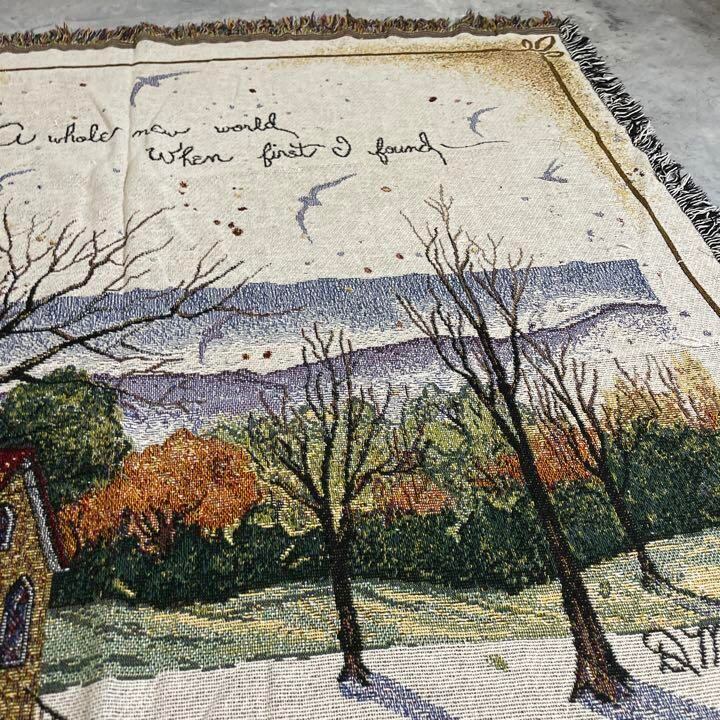 A whole new world
When first I found